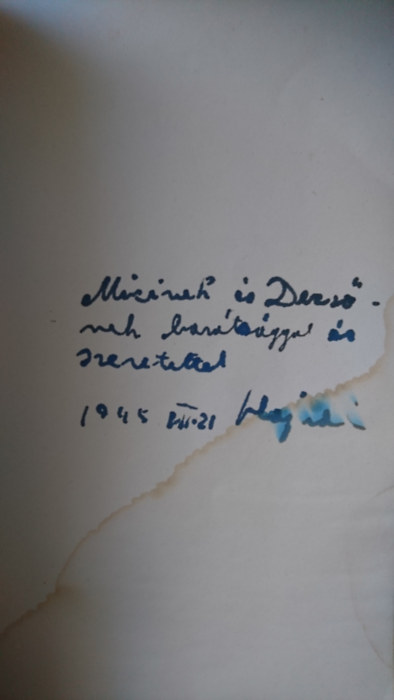 Micinek és Dezső-
nek barátsággal és
szeretettel
1945 VIII.21